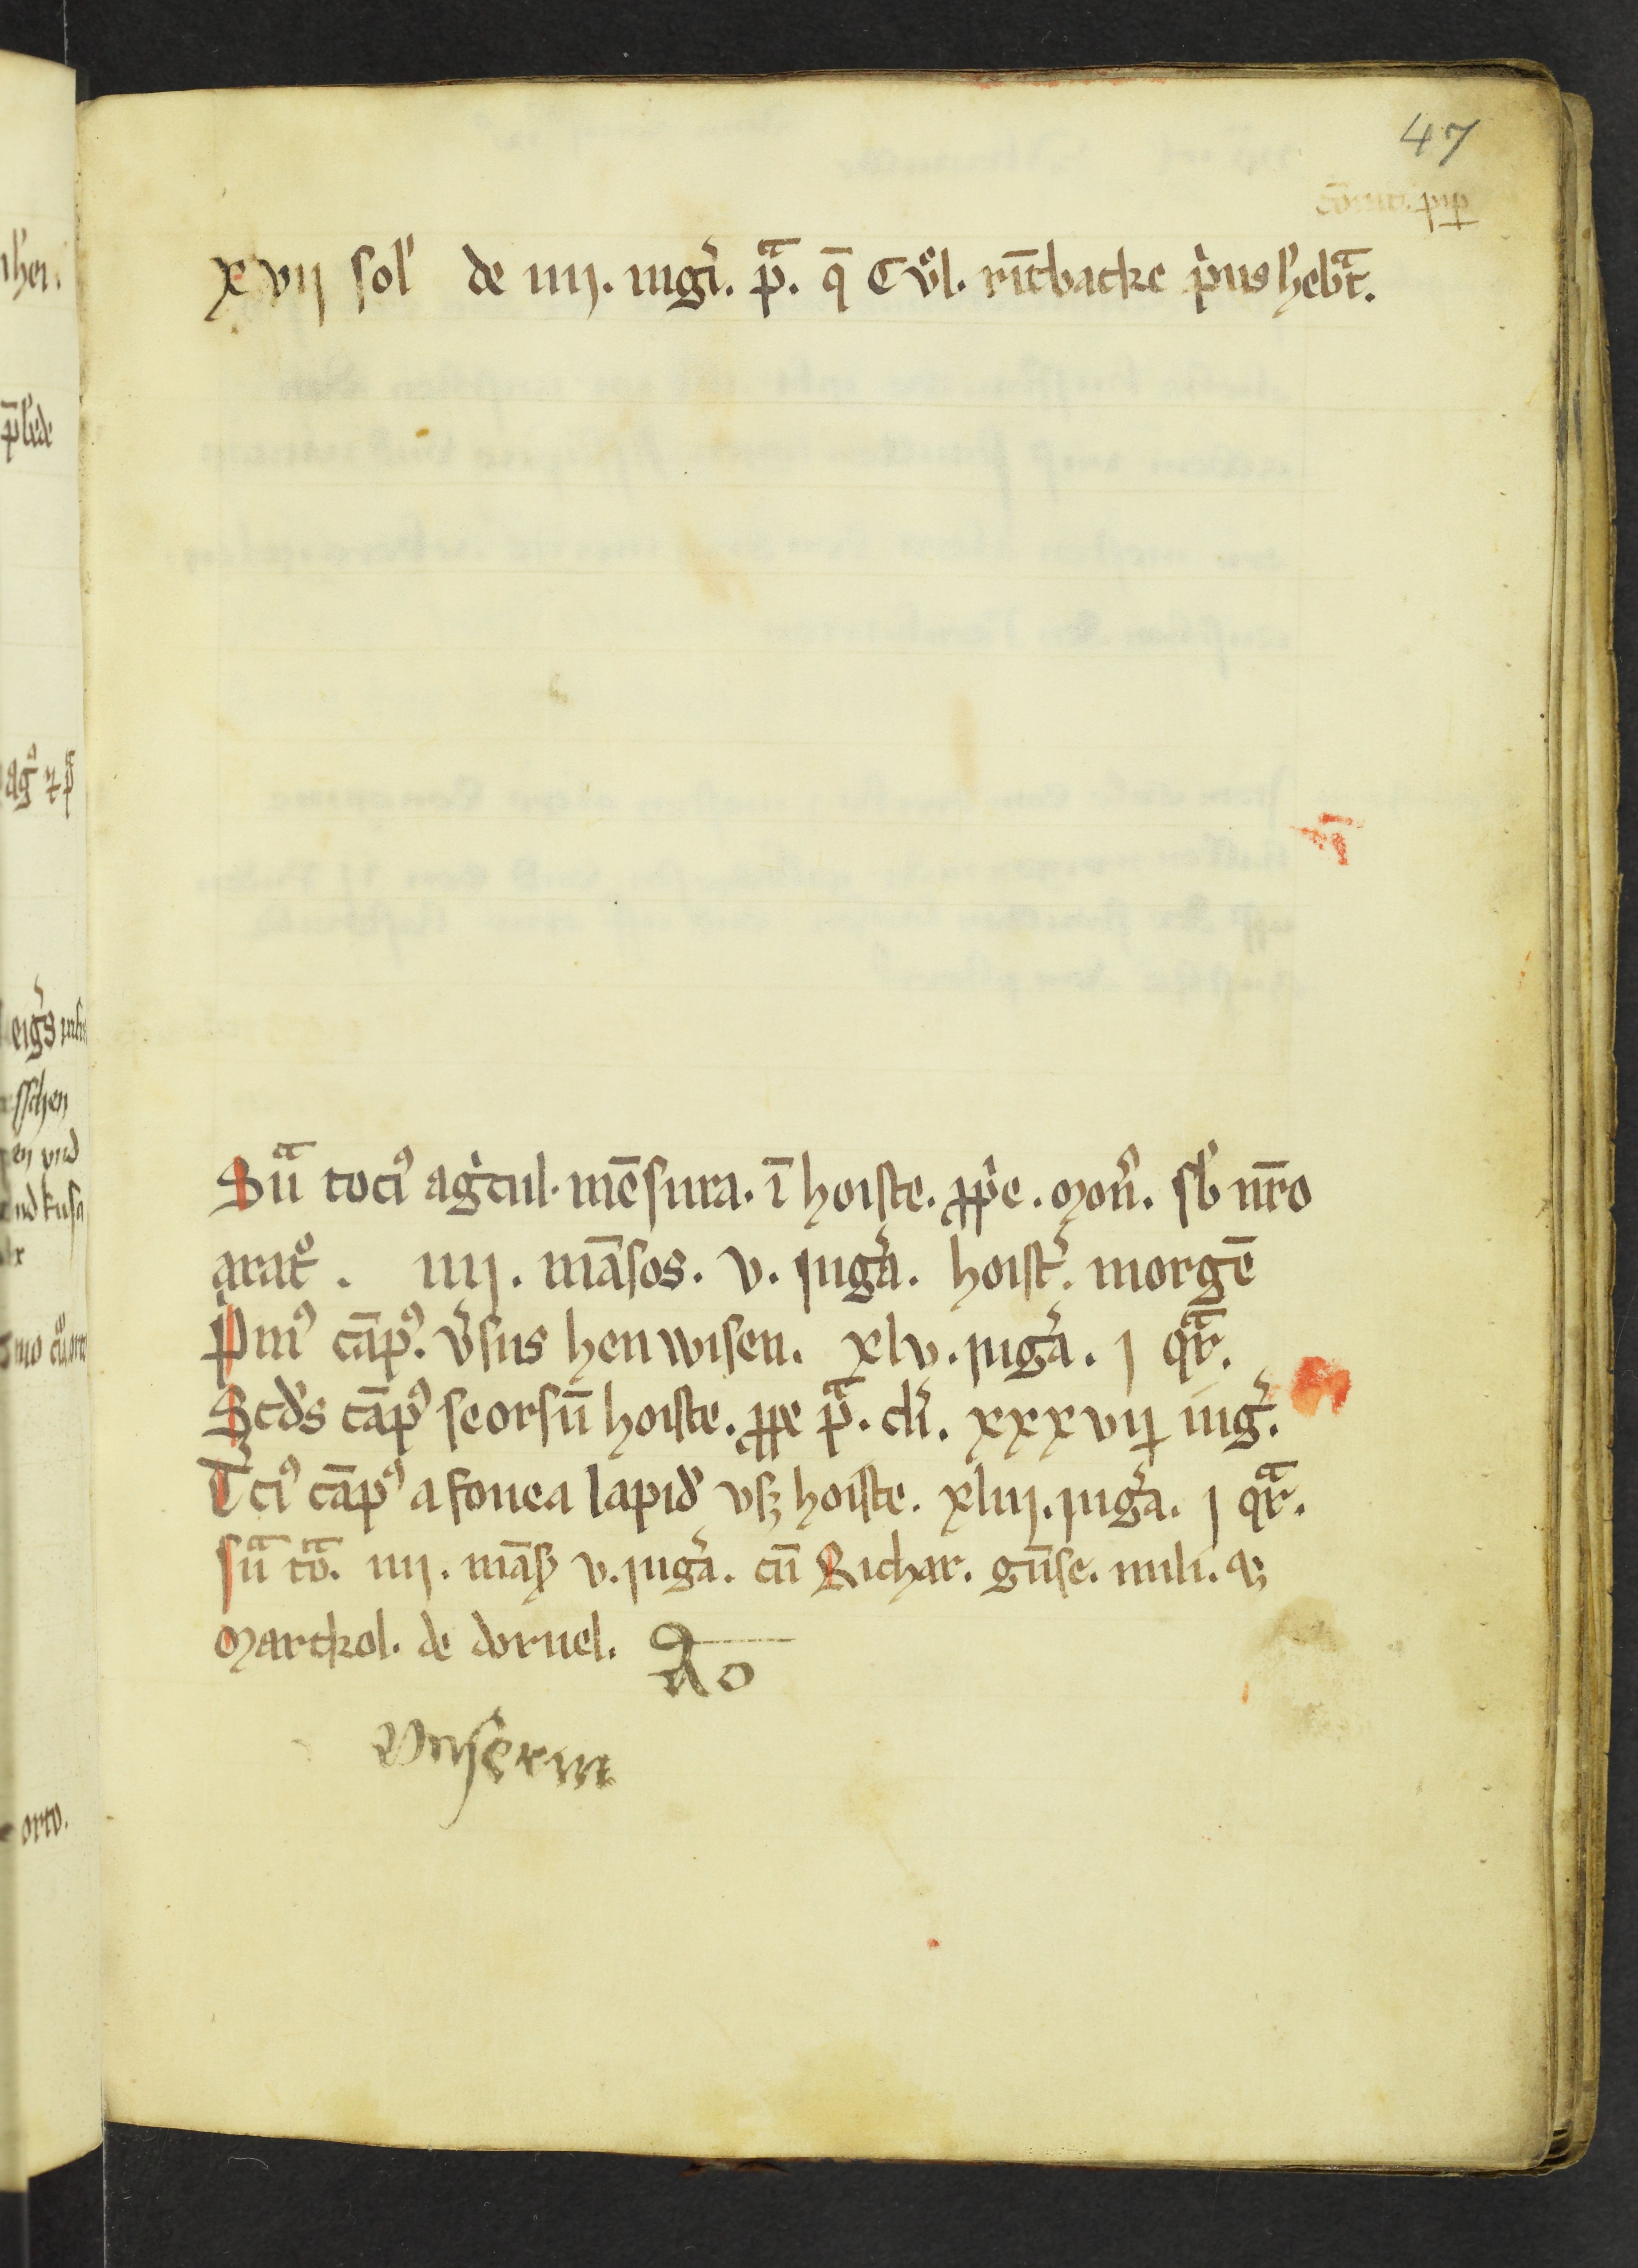 47
xvij sol' de iiij. iugi᷑. p̄ᵃ. q̄ Cůl. rīt̄backe pius h̓ebᵃt.
Sūᵃ toci⁹ ag̓cul. mēsura. ī hoiste. ꝓp̓e. moñ. sb̓ nr̄o
aratͦ. iiij. māsos. v. iuḡa. hoist᷑. morgē
P̓m⁹ cāp⁹. v̓sus henwisen. xlv. iug᷑a. j qᵃr.
Scd̓s cāp⁹ seorsū hoiste. ꝓpe p̄ᵃ. cli᷑. xxxvij iug᷑.
T̓ci⁹ cāp⁹ a fouea lapid̓ vsꝫ hoiste. xliij. iug᷑a. j qᵃr.
sūᵃ to᷑ᵃ. iiij. māsꝭ v. iug᷑a. cū Richar. gūse. mili. ⁊
Marckol. de doruel.
do
Vnserm